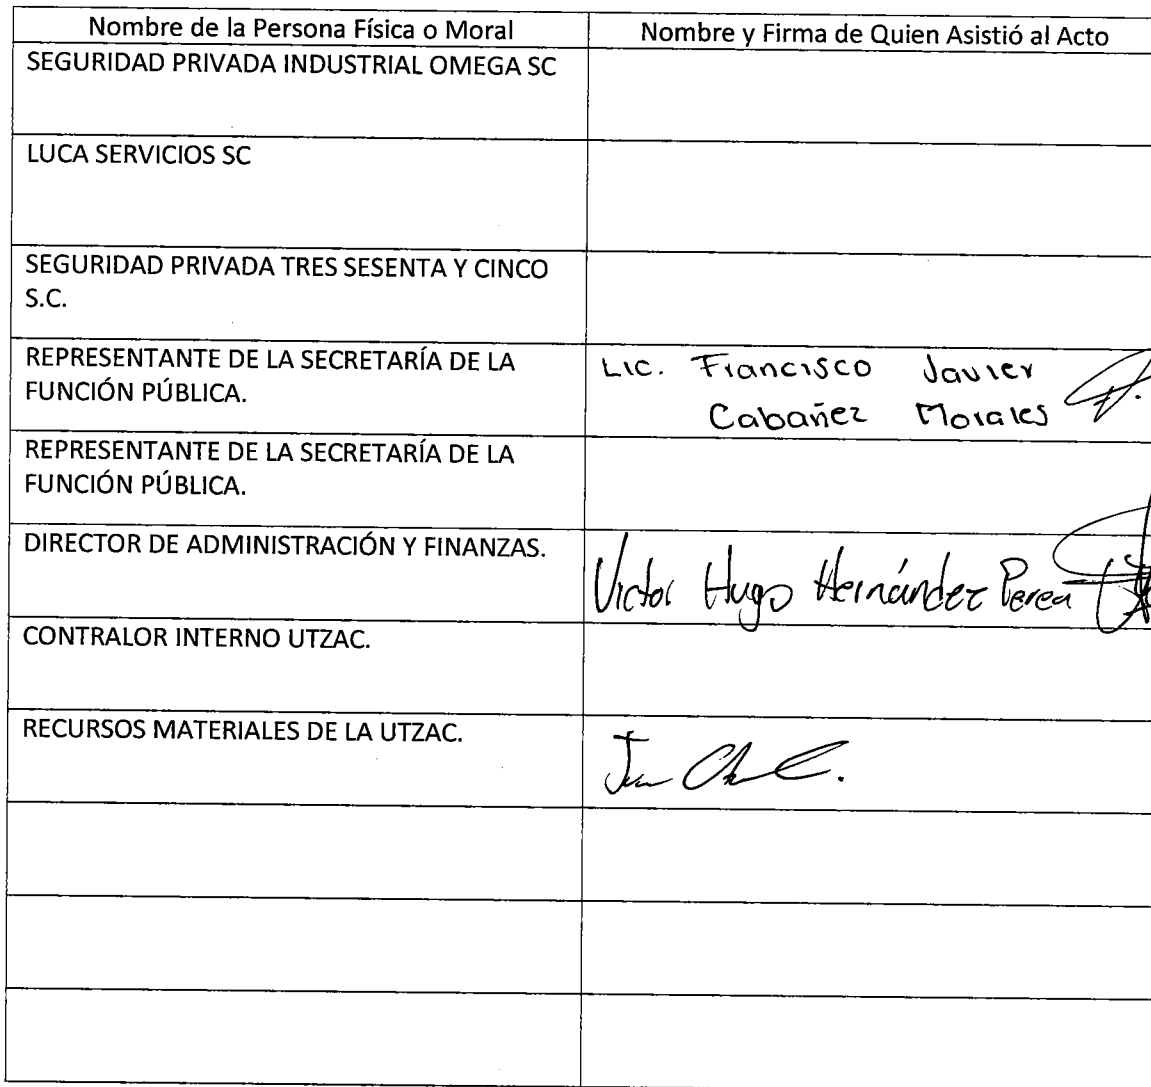 Nombre de la Persona Física o Moral
Nombre y Firma de Quien Asistió al Acto
SEGURIDAD PRIVADA INDUSTRIAL OMEGA SC
LUCA SERVICIOS SC
SEGURIDAD PRIVADA TRES SESENTA Y CINCO
S.C.
REPRESENTANTE DE LA SECRETARÍA DE LA
FUNCIÓN PÚBLICA.
Lic. Francisco Javier
Cabañez Morales
REPRESENTANTE DE LA SECRETARÍA DE LA
FUNCIÓN PÚBLICA.
DIRECTOR DE ADMINISTRACIÓN Y FINANZAS.
Victor Hugo Hernández Perea
CONTRALOR INTERNO UTZAC.
RECURSOS MATERIALES DE LA UTZAC.